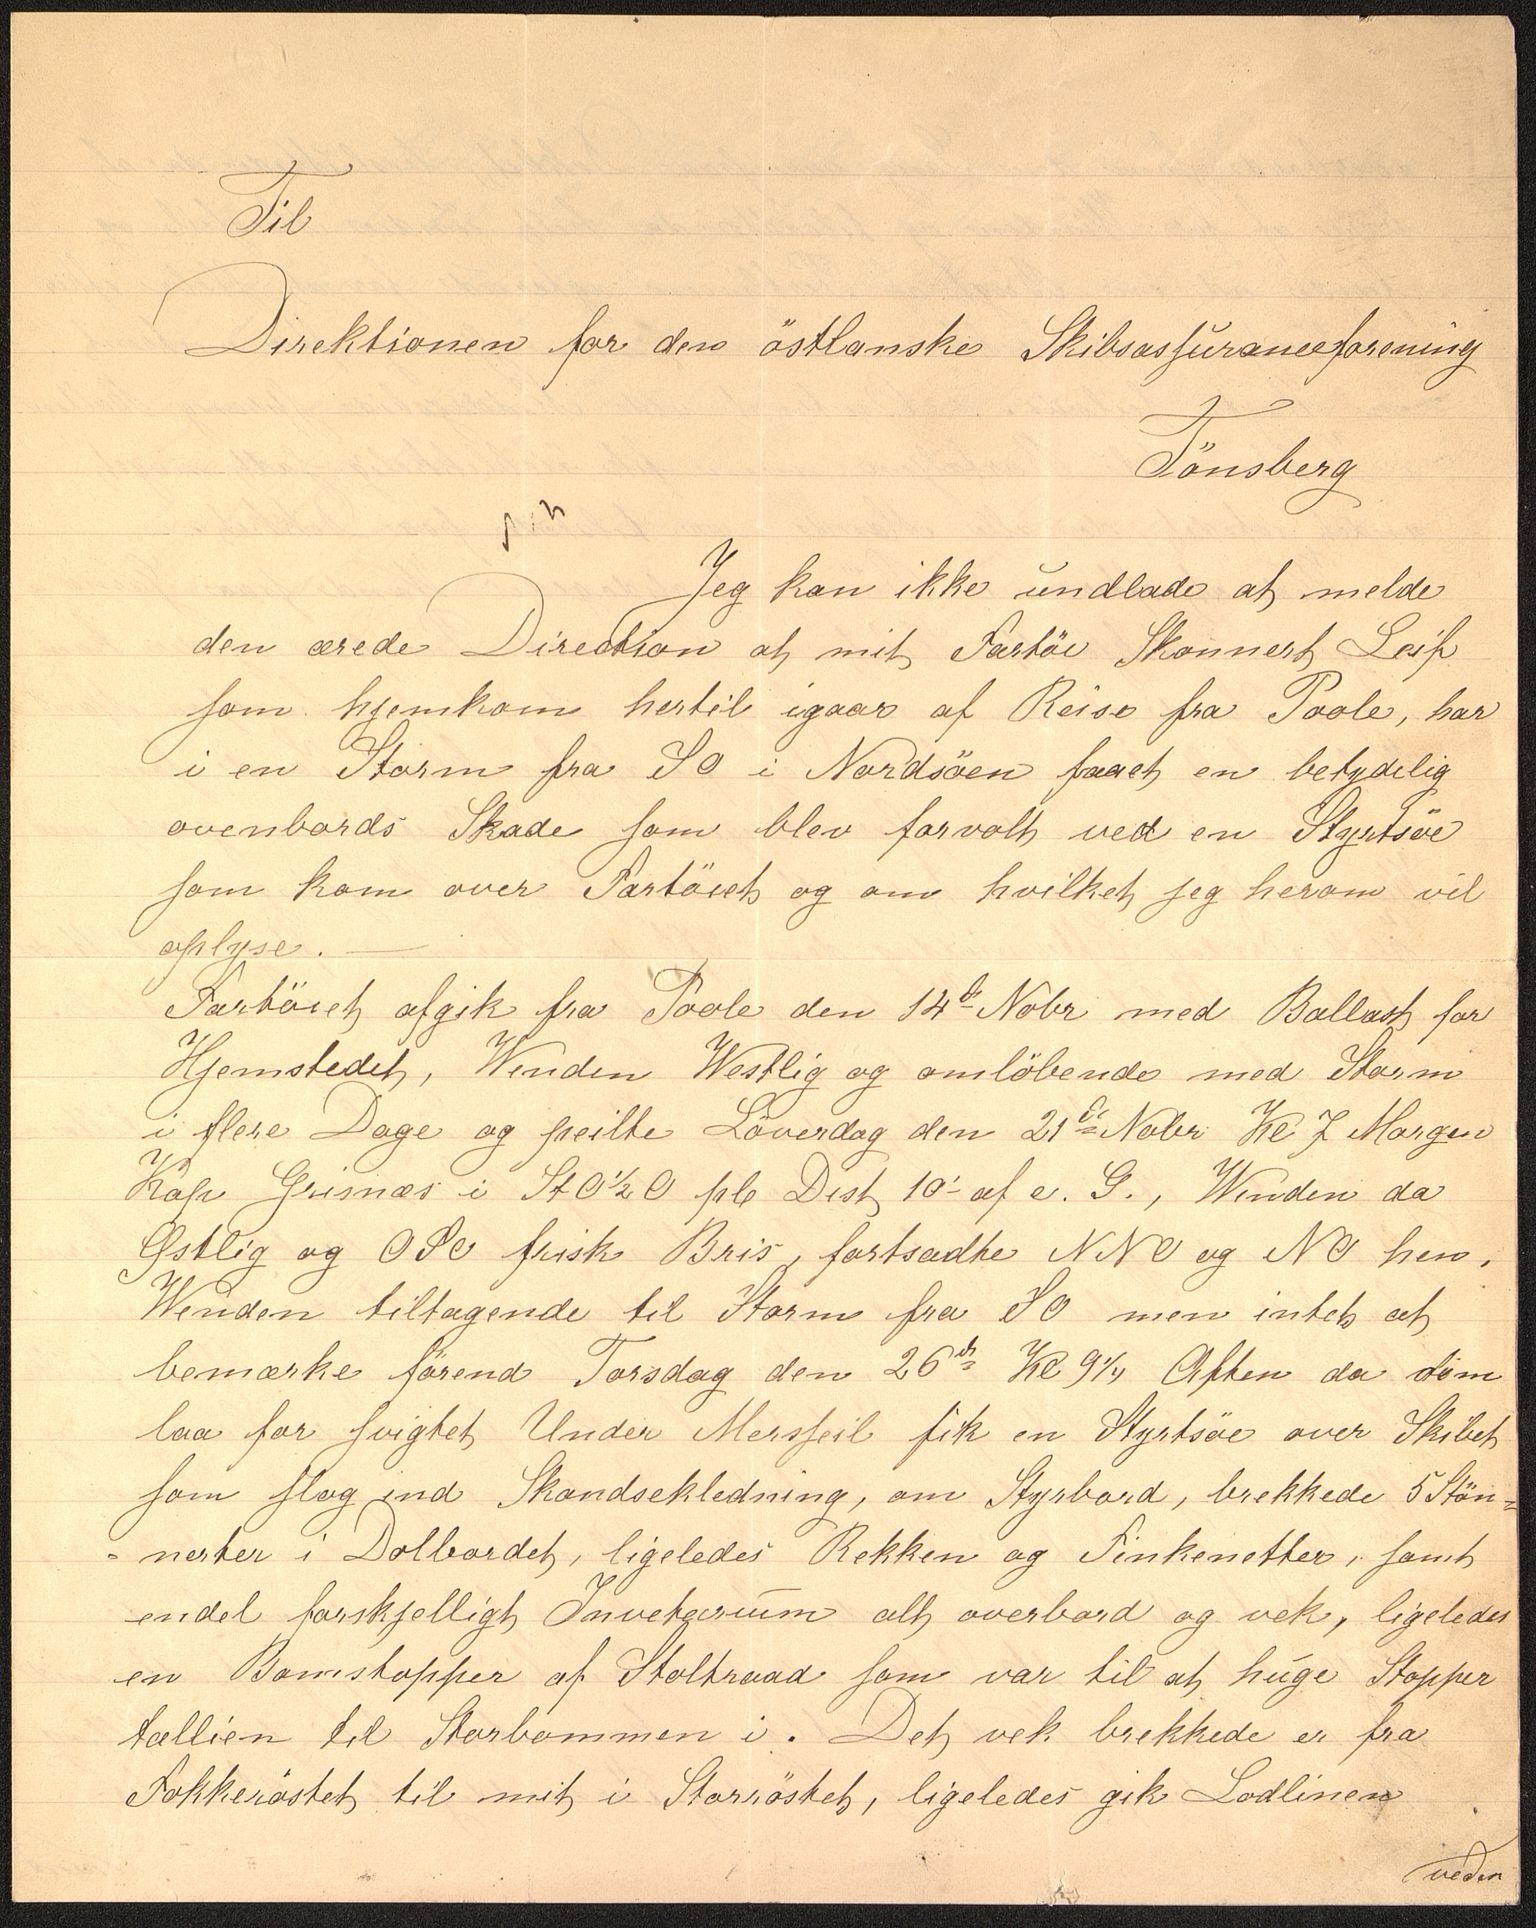 Til
Direktionen for den östlanske Skibsassuranceforening
Tönsberg
Jeg kan ikke undlade at melde
den ærede Direction at mit Fartöie Skonnert Leif
som hjemkom hertil igaar af Reise fra Poole, har
i en Storm fra SO i Nordsöen faaet en betydelig
ovenbords Skade som blev forvolt ved en Styrtsöe
som kom over Fartöiet og om hvilket jeg herom vil
oplyse. —
Fartöiet afgik fra Poole den 14de Nobr med Ballast for
Hjemstedet, Winden Westlig og omlöbende med Storm
i flere Dage og peilte Löverdag den 21de Nobr Kl 7 Morgen
Kap Grisnæs i StO½O pC Dist 10' af e. G., Winden da
Østlig og OSO frisk Bris, fortsadte NNO og NO hen,
Winden tiltagende til Storm fra SO men intet at
bemærke förend Torsdag den 26de Kl 9¼ Aften da
laa for svigtet Under Mersseil fik en Styrtsöe over Skibet
som slog ind Skandsekledning, om Styrbord, brekkede 5 Stön=
=nerter i Dolbordet, ligeledes Rekken og Finkenetter, samt
endel forskjelligt Invetarium alt overbord og vek, ligeledes
en Bomstopper af Stoltraad som var til at huge Stopper
tællien til Storbommen i. Det vek brekkede er fra
Fokkeröstet til mit i Storröstet, ligeledes gik Lodlinen
veden